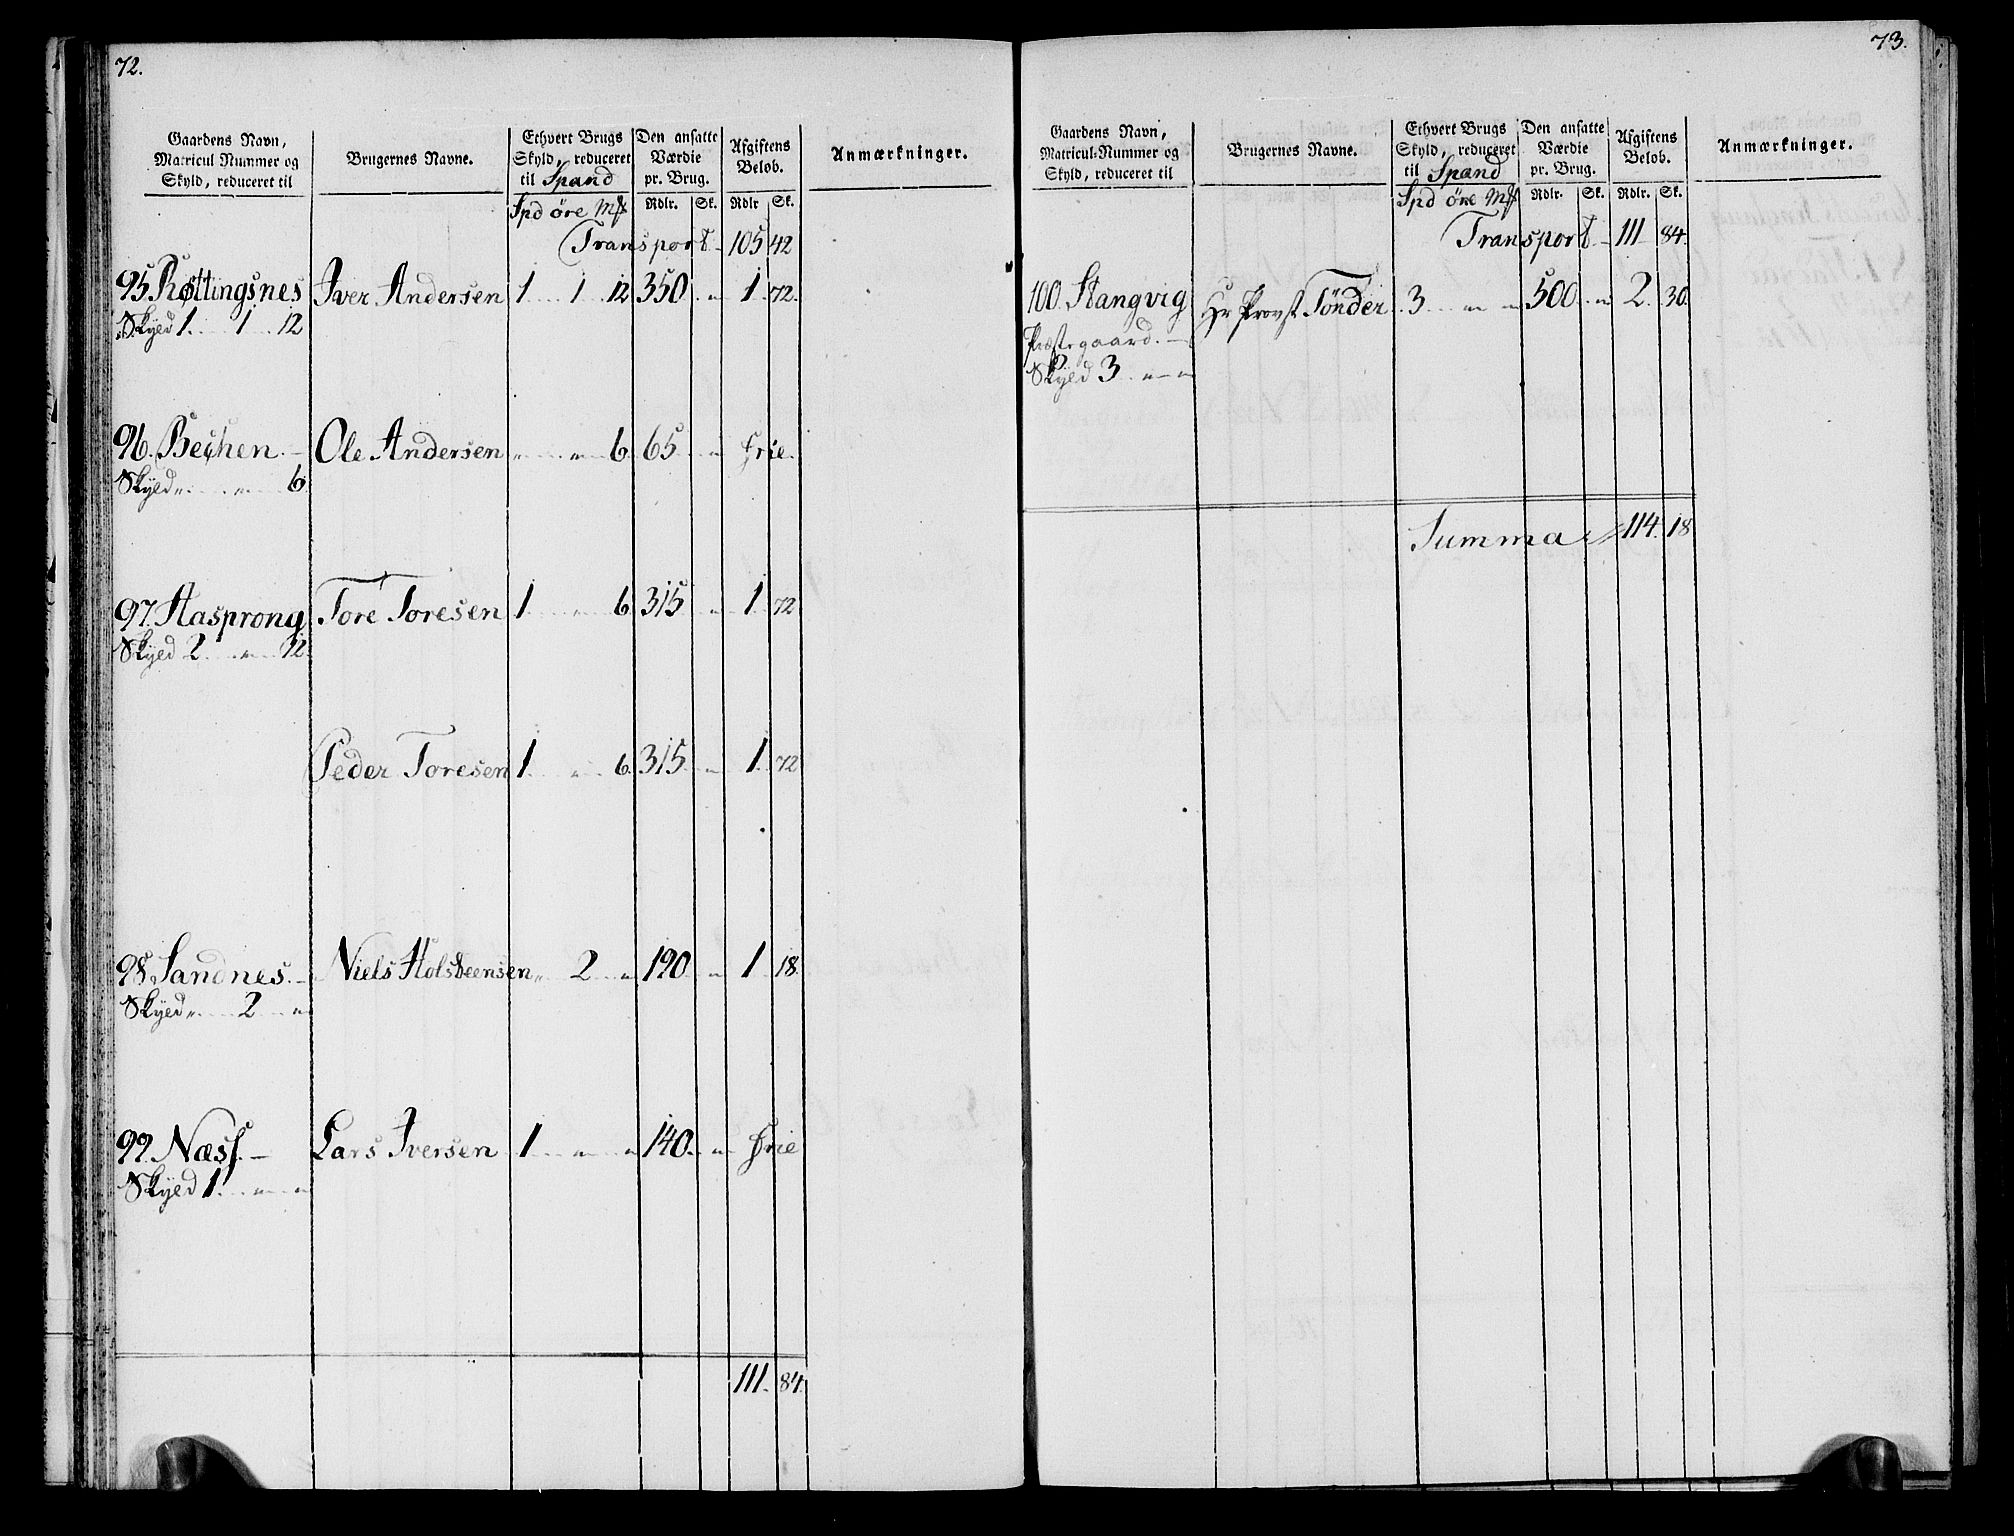 72.
Gaardens Navn, Matricul Nummer og Skyld, reduceret til | Brugernes Navne. | Ethvert Brugs Skyld, reduceret til Spand | Den ansatte Værdie pr. Brug. | Afgiftens Beløb. | Anmærkninger.
Spd öre Mk | Rdlr. | Sk. | Rdlr | Sk.
Transport 105 42
95. Røttingsnes Iver Andersen 1 1 12 350 " 1 72.
Skyld 1 1 12
96. Bechen. Ole Andersen " " 6. 65 " frie.
Skyld " " 6
97. Hasprong Tore Toresen 1 " 6. 315 " 1 72
Skyld 2 " 12.
Peder Toresen 1 " 6. 315 " 1. 72
98. Sandnes. Niels Holsteensen " 2 " 120 " 1 18.
Skyld " 2 "
99. Næss. Lars Iversen 1 " " 140 " frie
Skyld 1 " "
111. 84.
73.
Gaardens Navn, Matricul-Nummer og Skyld, reduceret til | Brugernes Navne. | Ethvert Brugs Skyld, reduceret til Spand | Den ansatte Værdie pr. Brug. | Afgiftens Beløb. | Anmærkninger.
Spd öre Mk | Rdlr. | Sk. | Rdlr. | Sk.
Transport 111 84.
100. Stangvig Hr Provst Tönder 3 " " 500 " 2. 30.
Præstegaard.
Skyld 3 " "
Summa 114. 18